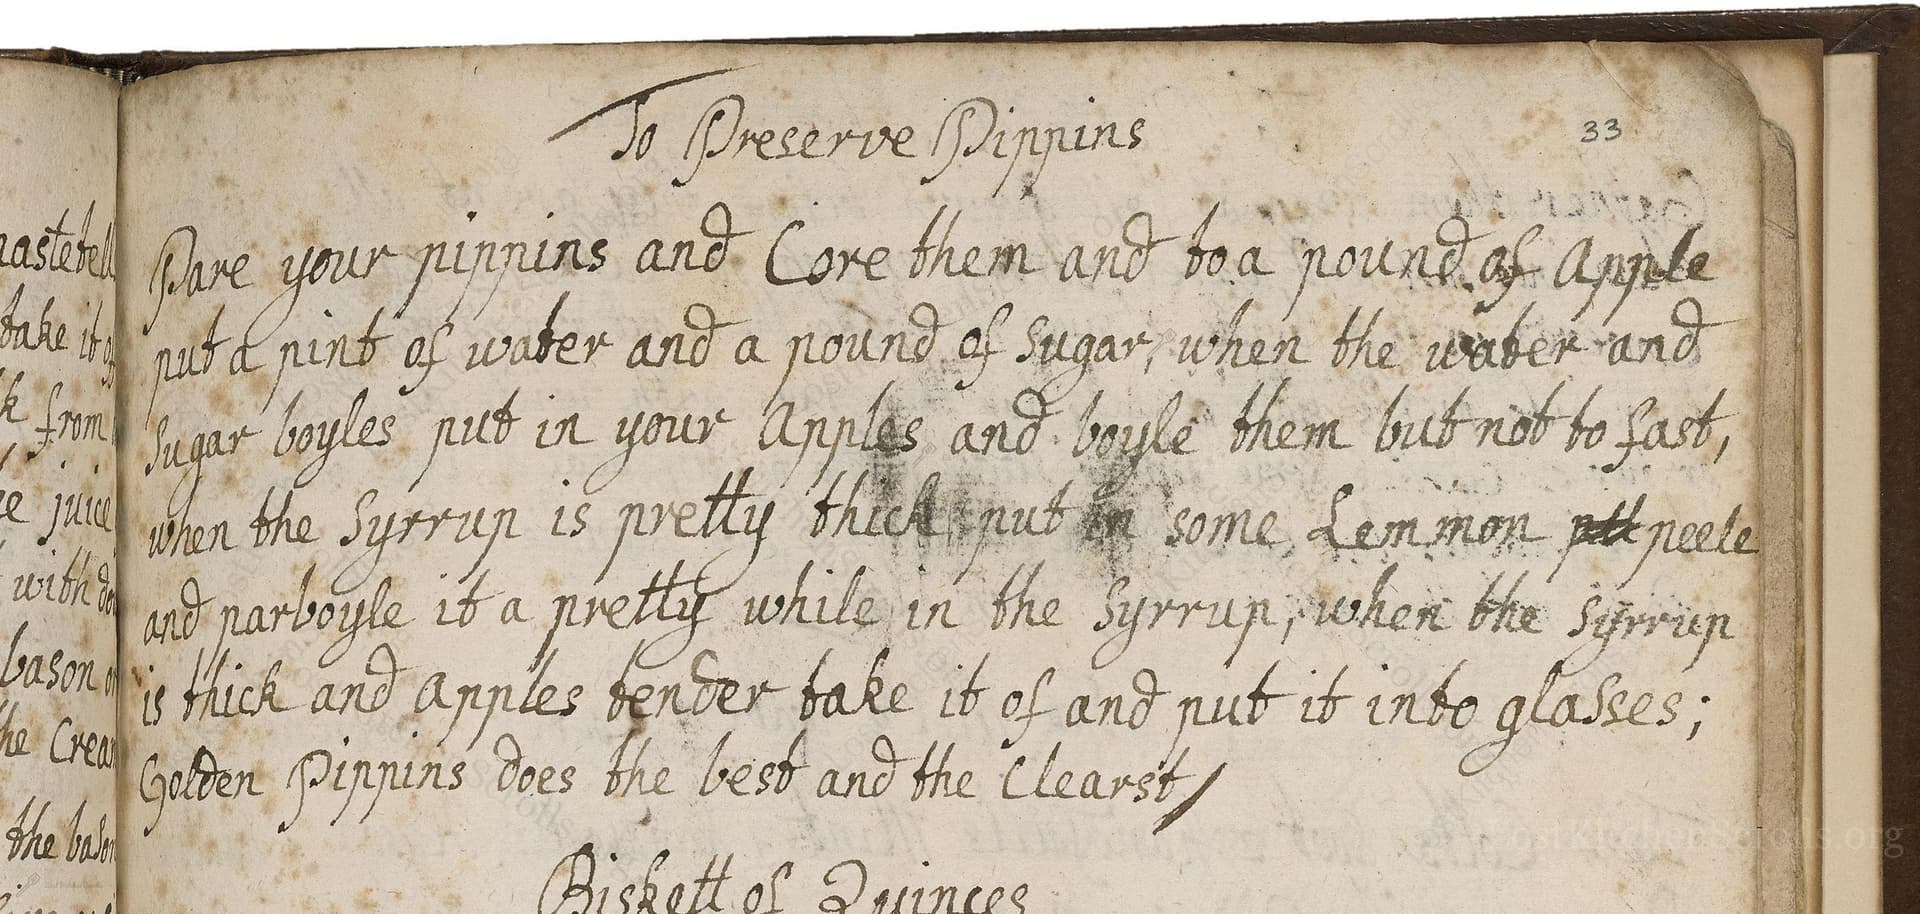 To Preserve Pippins
33
Pare your pippins and Core them and to a pound of Apple
put a pint of water and a pound of sugar, when the water and
sugar boyles put in your Apples and boyle them but not to fast,
when the Syrrup is pretty thick put in some Lemmon peele
and parboyle it a pretty while in the Syrrup, when the Syrrup
is thick and Apples tender take it of and put it into glasses;
Golden Pippins does the best and the Clearst/
Biskett of Quinces
take it of
from
juice
with
bason
the
the bason
LostKitchenScrolls.org